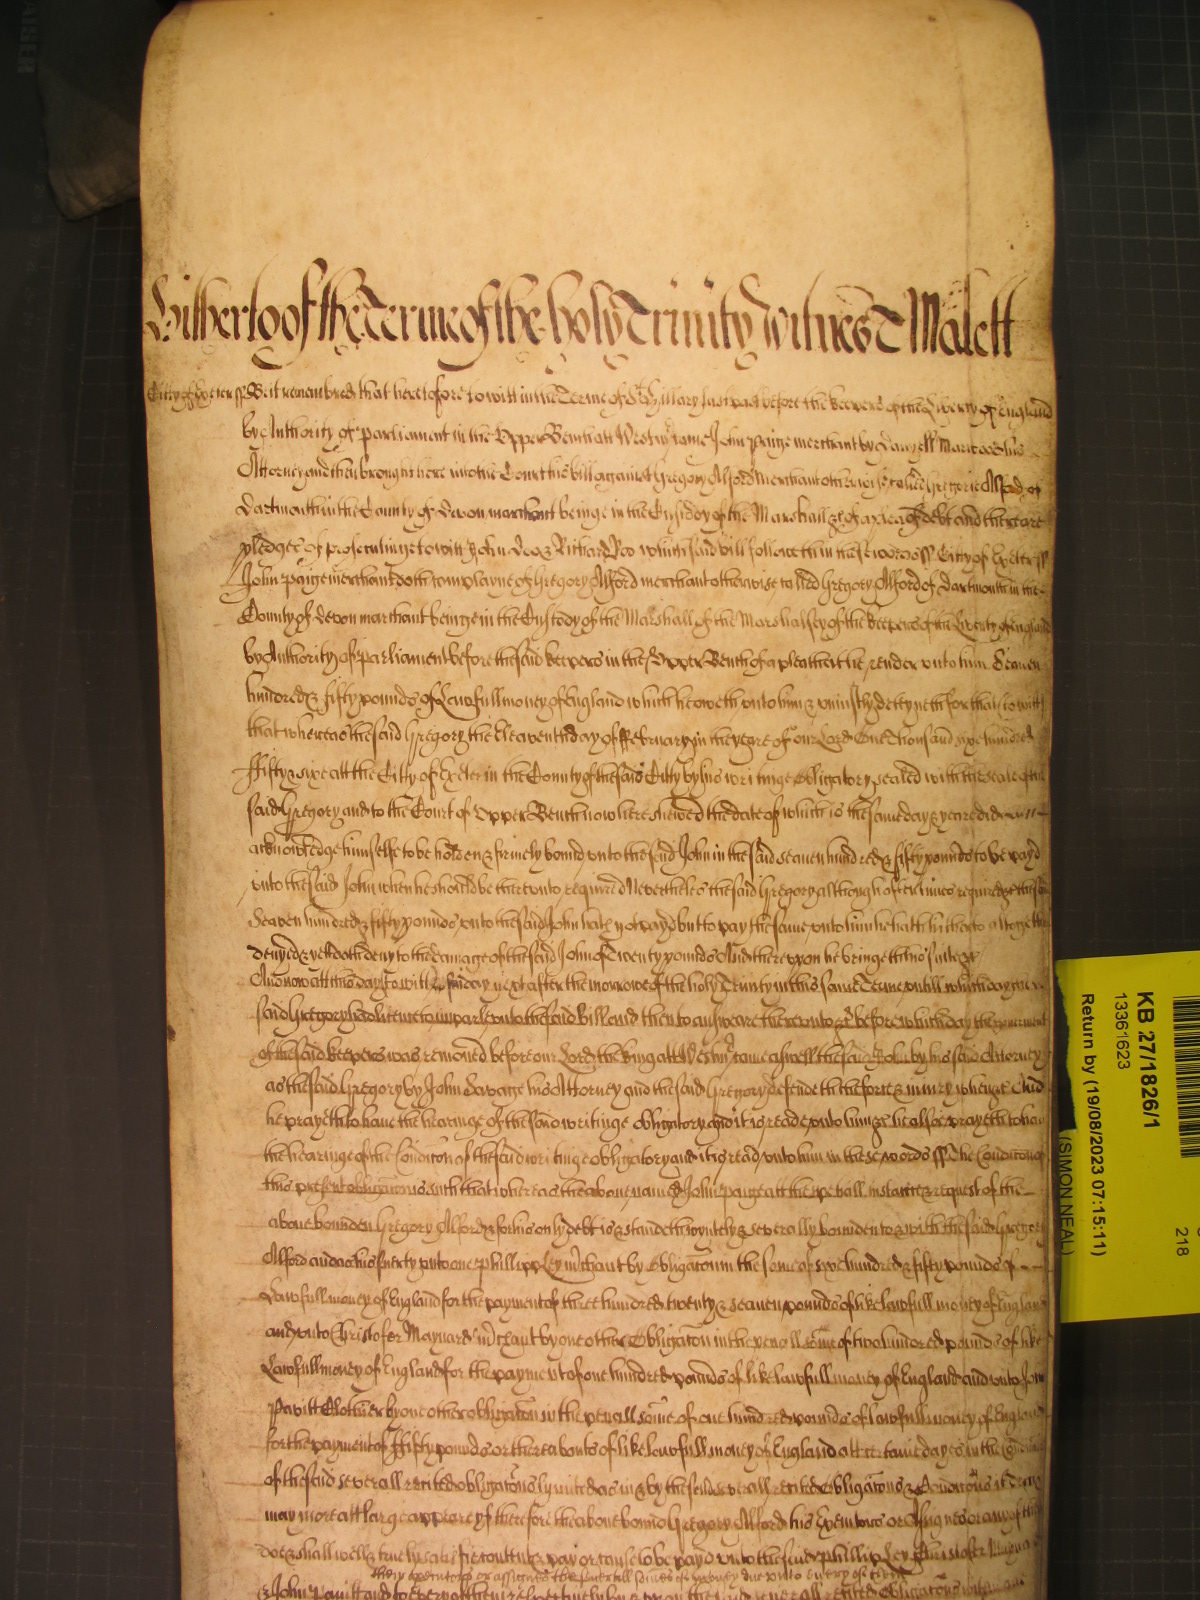 Hitherto of the Terme of the holy Trinity Witnes T Malett
Citty of Exeter ss Be it remembred that heretofore to witt in the Terme of St Hillary last past before the keepers of the Liberty of England
by Authority of parliament in the Upper Bench att Westmr came John Paige merchant by Danyell his
Attorney and then brought here into the Court his bill against Gregory Alford merchant otherwise called Gregorie Alford of
Dartmouth in the County of Devon marchant beinge in the Custidoy of the Marshall &c of a plea of debt and there are
pledges of prosecutinge to witt John Doo & Richard Roo which said bill followeth in these words ss Citty of Exeter ss
John Paige merchant doth complayne of Gregory Alford merchant otherwise called Gregory Alford of Dartmouth in the
County of Devon marchant beinge in the Custody of the Marshall of the Marshalsey of the keepers of the Liberty of England
by Authority of parliament before the said keepers in the Upper Bench of a plea that he render unto him Seaven
hundred & fifty pounds of Lawfull money of England which he oweth unto him & uniustly deteyneth for that to witt
that whereas the said Gregory the Eleaventh day of February in the yeare of our Lord One Thousand sixe hundred
Fifty & sixe att the Citty of Exeter in the County of the said Citty by his writinge obligatory sealed with the seale of the
said Gregory and to the Court of Upper Bench now here shewed the date of which is the same day & yeare did
acknowledge himselfe to be holden & firmely bound unto the said John in the said seaven hundred & fifty pounds to be payd
unto the said John when he should be thereunto required Nevertheles the said Gregory although often times required &c the said
Seaven hundred & fifty pounds unto the said John hath not payd but to pay the same unto him he hath hitherto altogether
denyed & yet doth deny to the damage of the said John of Twenty pounds And thereupon he bringeth his suite &c
And now att this day to witt Friday next after the morrowe of the holy Trinity in this same Terme untill which day the
said Gregory had licence to imparle unto the said bill and then to answeare thereunto &c before which day the
of the said keepers was removed before our Lord the King att Westmr came aswell the said John by his said Attorney
as the said Gregory by John Savage his Attorney and the said Gregory defendeth the force & iniury when &c And
he prayeth to have the hearinge of the said writinge obligatory and it is reade unto him &c he alsoe prayeth to have
the hearinge of the Condicon of the said writinge obligatory and it is read unto him in these words ss The Condicon of
this present obligacon is such that whereas the above named John Paige att the speciall instance & request of the
above bounden Gregory Alford & for his only debt is & standeth ioyntely & severally bounden to & with the said Gregory
Alford and as his suerty unto one Phillip Ley mchant by Obligacon in the some of sixe hundred & fifty pounds of
Lawfull money of England for the payment of three hundred twenty & seaven pounds of like lawfull money of England
and unto Christofer Maynard mchant by one other Obligacon in the penall some of two hundred pounds of like
Lawfull money of England for the payment of one hundred pounds of like lawfull money of England and unto John
Pavitt Clothier by one other obligacon in the penall some of one hundred pounds of lawfull money of England
for the payment of Fifty pounds or thereabouts of like lawfull money of England att certaine dayes in the Condicons
of the said severall recited obligacons lymited as in & by the said severall recited Obligacons & Condicons it
may more att large appeare yf therefore the above bound Gregory Alford his Executors or Assignes or any of them
doe & shall well & truely satisfie content & pay or cause to be payd unto the said Phillip Ley Christofer Maynard
their executors or assignes the severall somes of money due unto every of them
& John Pavitt and to every of them
KB 27/1826/1
13361623
Return by (19/08/2023 07:15:11)
(SIMON NEAL)
218